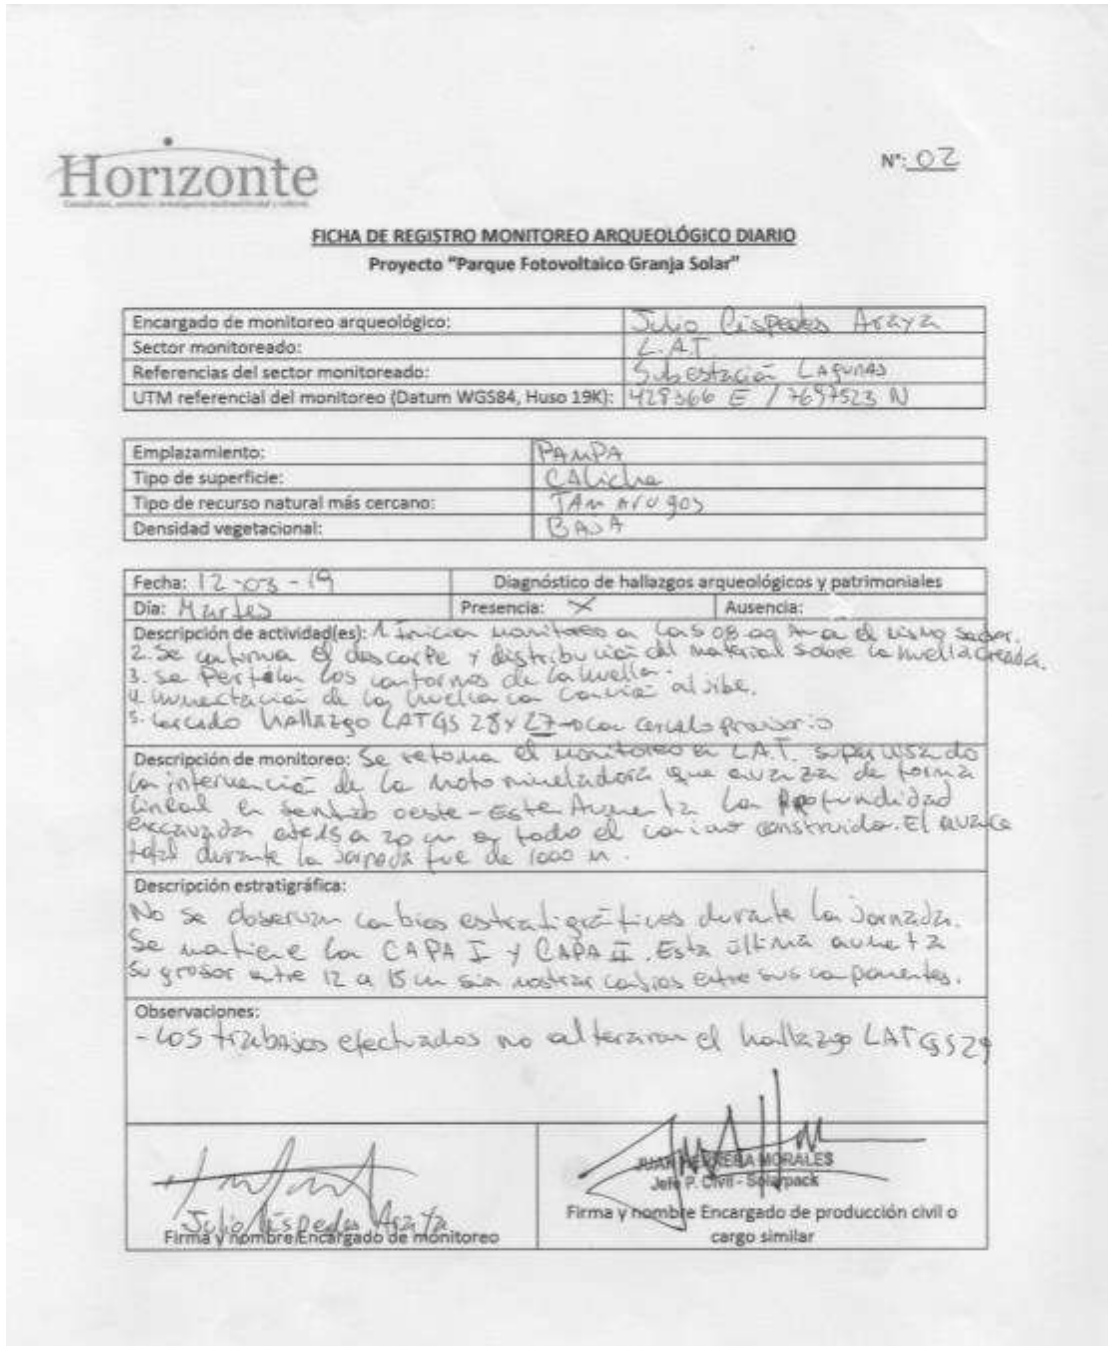 Horizonte
N°: 02
FICHA DE REGISTRO MONITOREO ARQUEOLÓGICO DIARIO
Proyecto "Parque Fotovoltaico Granja Solar"
Encargado de monitoreo arqueológico: Julio Céspedes Araya
Sector monitoreado: L.A.T
Referencias del sector monitoreado: Subestación Lagunas
UTM referencial del monitoreo (Datum WGS84, Huso 19K): 429366 E / 7697523 N
Emplazamiento: PAMPA
Tipo de superficie: CALiche
Tipo de recurso natural más cercano: TAMArugos
Densidad vegetacional: BAJA
Fecha: 12-03-19 Diagnóstico de hallazgos arqueológicos y patrimoniales
Día: Martes Presencia: X Ausencia:
Descripción de actividad(es): 1. Inicia monitoreo a las 08:09 en el mismo sector.
2. Se continua el descarpe y distribución del material sobre la huella creada.
3. Se Perfilan los contornos de la huella.
4. Humectación de la huella con camión aljibe.
5. Cercado hallazgo LATGS 28 y 27 con cercado provisorio
Descripción de monitoreo: Se retoma el monitoreo en L.A.T. supervisando
la intervención de la motoniveladora que avanza de forma
lineal en sentido oeste-Este Aumenta la Profundidad
excavada a 20 cm en todo el camino construido. El avance
total durante la jornada fue de 1000 m.
Descripción estratigráfica:
No se observan cambios estratigráficos durante la Jornada.
Se mantiene la CAPA I y CAPA II. Esta última aumenta
su grosor entre 12 a 15 cm sin mostrar cambios entre sus componentes.
Observaciones:
- Los trabajos efectuados no alteraron el hallazgo LATGS29
Julio Céspedes Araya
Firma y nombre Encargado de monitoreo
JUAN HERRERA MORALES
Jefe P. Civil - Solarpack
Firma y nombre Encargado de producción civil o
cargo similar